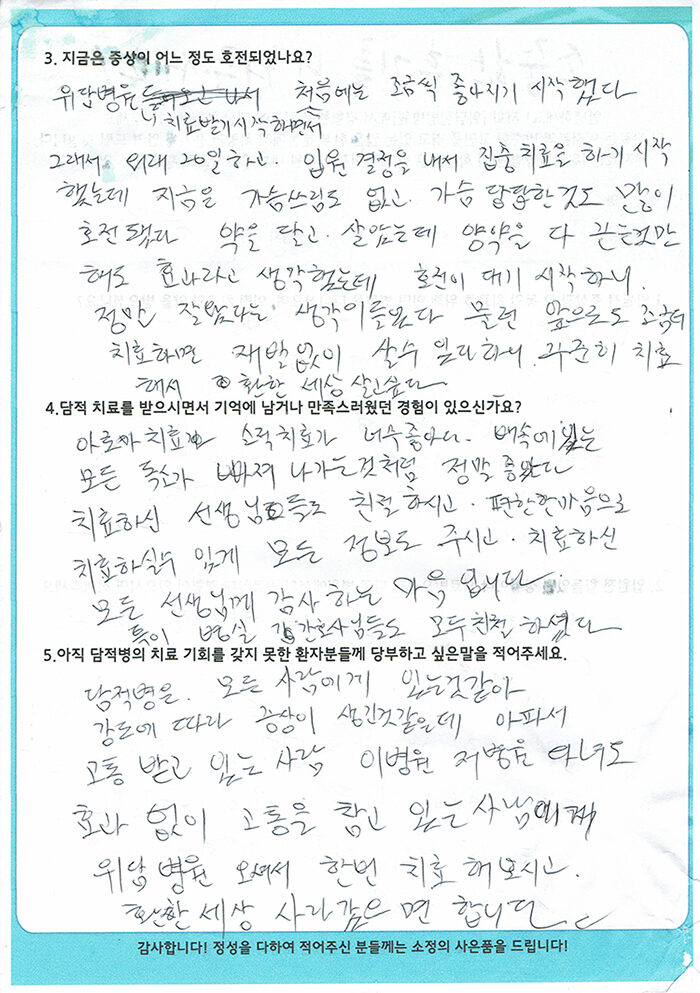 3. 지금은 증상이 어느 정도 호전되었나요?
위담병원 처음에는 조금씩 좋아지기 시작했다
치료받기 시작하면서
그래서 외래 20일하고. 입원 결정을 내서 집중치료을 하기 시작
했는데 지금은 가슴쓰림도 없고. 가슴 답답한것도 많이
호전됐다 약을 달고. 살았는데 양약을 다 끈는것만
해도 효과라고 생각했는데 호전이 대기 시작하니.
정말 잘왔다는 생각이들었다 물런 앞으로도 조금더
치효하면 재발없이 살수 있다하니. 꾸준히 치효
해서 환한 세상 살고싶다
4.담적 치료를 받으시면서 기억에 남거나 만족스러웠던 경험이 있으신가요?
아로마치효과 소적치효가 너무좋아다. 배속에있는
모든 독소가 빠져 나가는것처럼 정말 좋았다
치효하신 선생님들도 친절하시고. 편한한마음으로
치효하실수 있게 모든 정보도 주시고. 치효하신
모든 선생님께 감사하는 마음입니다.
특이 병실 간호사님들도 모두친절하셨다
5.아직 담적병의 치료 기회를 갖지 못한 환자분들께 당부하고 싶은말을 적어주세요.
담적병은. 모든 사람에게 있는것같아
강도에 따라 증상이 생긴것같은데 아파서
고통 받고 있는 사람 이병원 저병원 다녀도
효과 없이 고통을 참고 있는 사람에게
위담병원 오셔서 한번 치효 해보시고.
환한 세상 사라갔은면 합니다
감사합니다! 정성을 다하여 적어주신 분들께는 소정의 사은품을 드립니다!